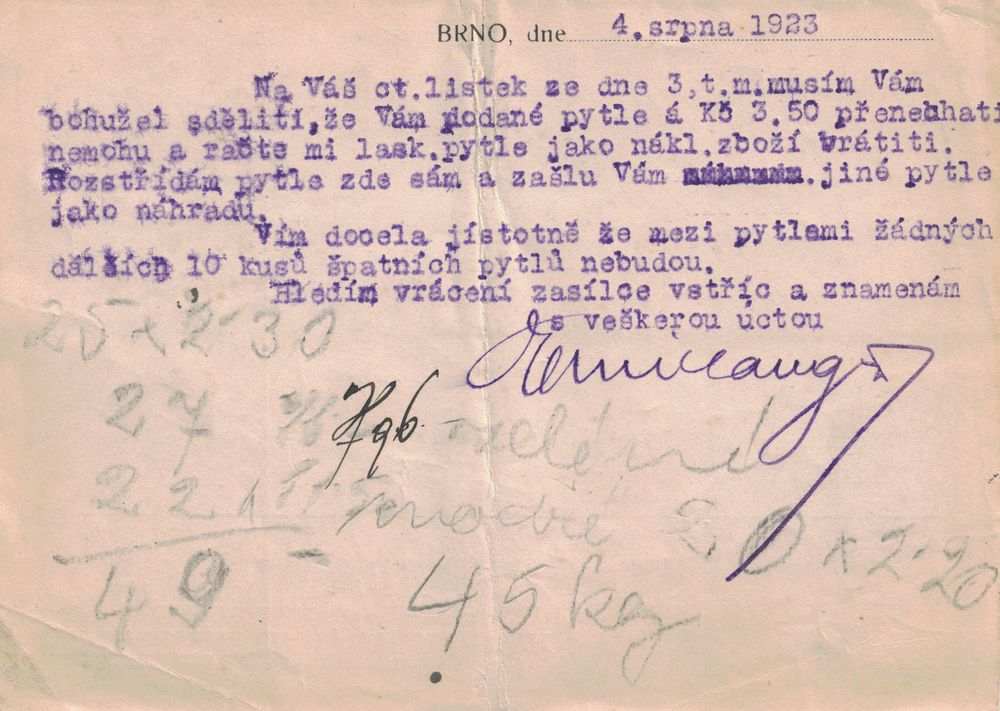 BRNO, dne 4.srpna 1923
Na Váš ct.listek ze dne 3,t.m.musím Vám
bohužel sdělití,že Vám dodané pytle á Kč 3.50 přenechati
nemohu a račte mi lask.pytle jako nákl.zboží vrátiti.
Rozstřídám pytle zde sám a zašlu Vám .jiné pytle
jako náhradu.
Vím docela jístotně že mezi pytlemi žádných
dálších 10 kusů špatních pytlů nebudou.
Hledím vrácení zasílce vstříc a znamenám
s veškerou úctou
25 x 2·30
796
27 zelené
22 modré 20 x 2·20
49 - 45 kg